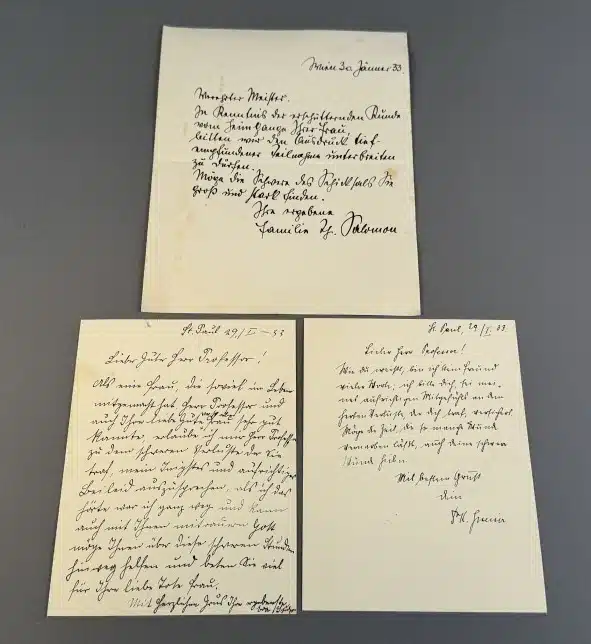 Wien 30. Jänner 33.
Verehrter Meister.
In Kenntnis der erschütternden Kunde
vom Heimgange Ihrer Frau,
bitten wir den Ausdruck tief-
empfundener Teilnahme unterbreiten
zu dürfen.
Möge die Schwere des Schicksals Sie
groß und stark finden.
Ihre ergebene
Familie Th. Salomon
St. Paul 29/I – 33
Lieber Guter Herr Professor!
Als eine Frau, die soviel im Leben
mitgemacht hat, Herr Professor und
auch Ihre liebe Gute Frau sehr gut
kannte, erlaube ich mir Herr Professor
zu dem schweren Verluste der Sie
traf, mein innigstes und aufrichtiges
Beileid auszusprechen, als ich das
hörte war ich ganz weg und kann
auch mit Ihnen mittrauern Gott
möge Ihnen über diese schweren Stunden
hinweg helfen und beten Sie viel
für Ihre liebe Tote Frau.
Mit herzlichen Grus Ihre ergebenste
St. Paul, 29/I. 33.
Lieber Herr
Wie du weißt, bin ich kein Freund
vieler Worte; ich bitte dich, sei mei-
nes aufrichtigen Mitgefühls an dem
herben Verluste, der dich traf, versichert.
Möge die Zeit, die so manche Wunde
vernarben läßt, auch deine schwere
Wund heilen.
Mit bestem Gruß
dein